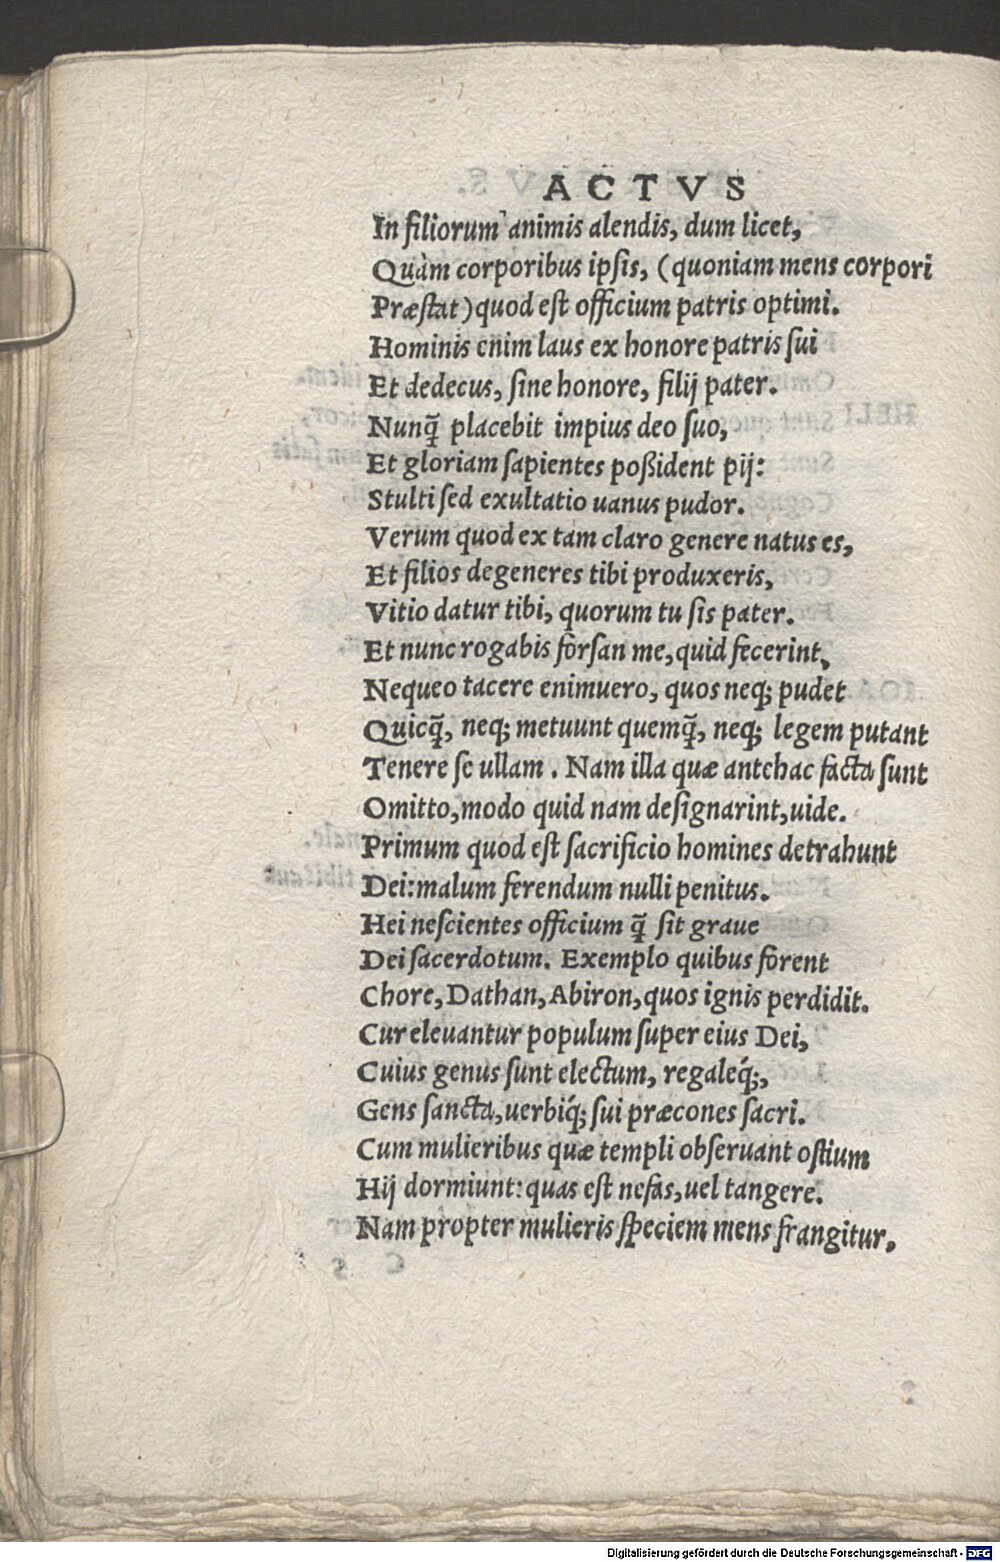 ACTVS
In filiorum animis alendis, dum licet,
Quàm corporibus ipſis, (quoniam mens corpori
Præſtat) quod eſt officium patris optimi.
Hominis enim laus ex honore patris ſui
Et dedecus, ſine honore, filij pater.
Nunq̃ placebit impius deo ſuo,
Et gloriam ſapientes poßident pij:
Stulti ſed exultatio uanus pudor.
Verum quod ex tam claro genere natus es,
Et filios degeneres tibi produxeris,
Vitio datur tibi, quorum tu ſis pater.
Et nunc rogabis forſan me, quid fecerint,
Nequeo tacere enimuero, quos neq; pudet
Quicq̃, neq; metuunt quemq̃, neq; legem putant
Tenere ſe ullam. Nam illa quæ antehac facta ſunt
Omitto, modo quid nam deſignarint, uide.
Primum quod eſt ſacrificio homines detrahunt
Dei: malum ferendum nulli penitus.
Hei neſcientes officium q̃ ſit graue
Dei ſacerdotum. Exemplo quibus forent
Chore, Dathan, Abiron, quos ignis perdidit.
Cur eleuantur populum ſuper eius Dei,
Cuius genus ſunt electum, regaleq́;,
Gens ſancta, uerbiq́; ſui præcones ſacri.
Cum mulieribus quæ templi obſeruant oſtium
Hij dormiunt: quas eſt nefas, uel tangere.
Nam propter mulieris ſpeciem mens frangitur,
Digitalisierung gefördert durch die Deutsche Forschungsgemeinschaft - DFG